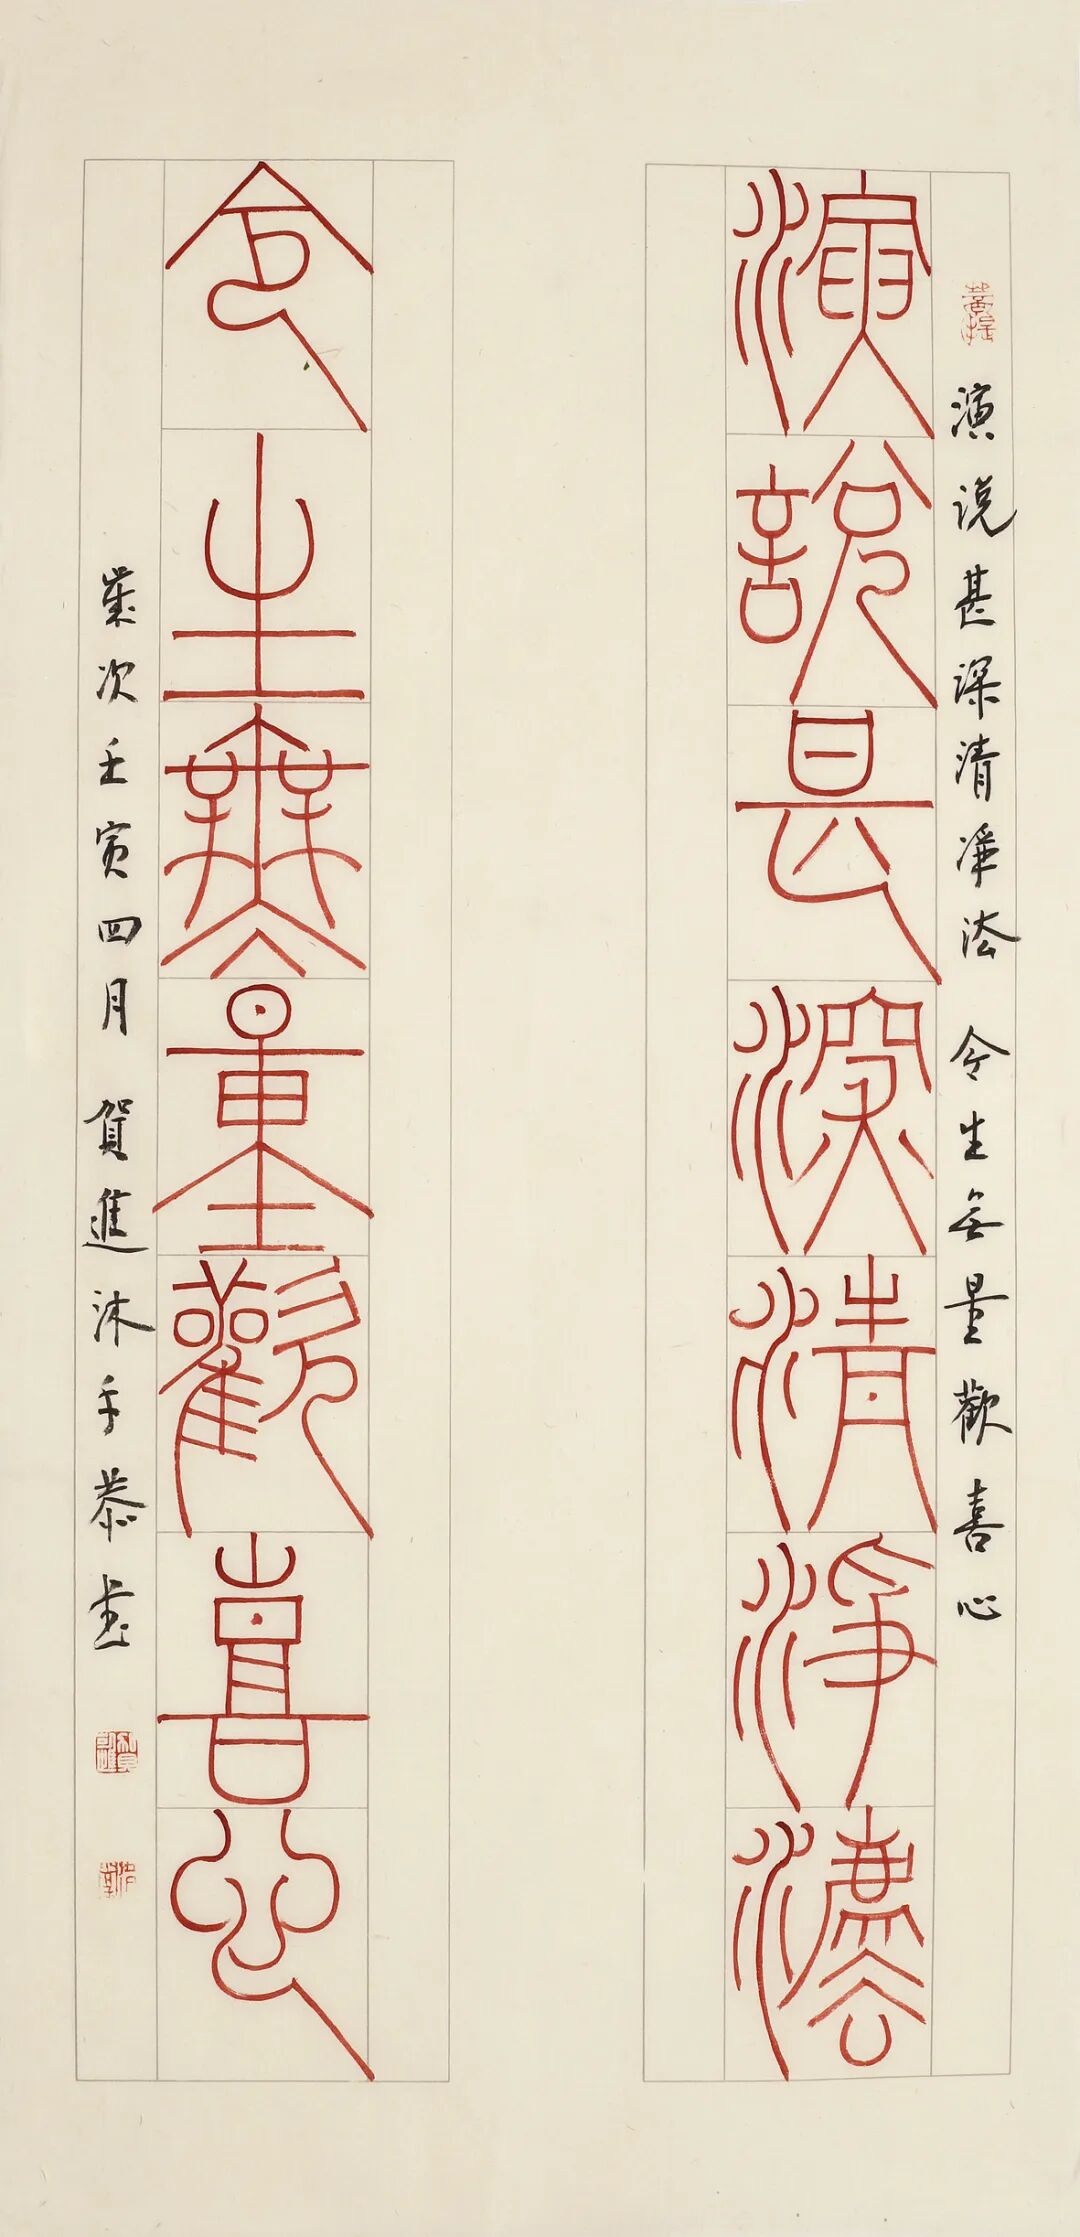 菩提
演说甚深清净法 令生无量歡喜心
演說甚深清淨灋
令生無量歡喜心
歲次壬寅四月 賀進沐手恭書